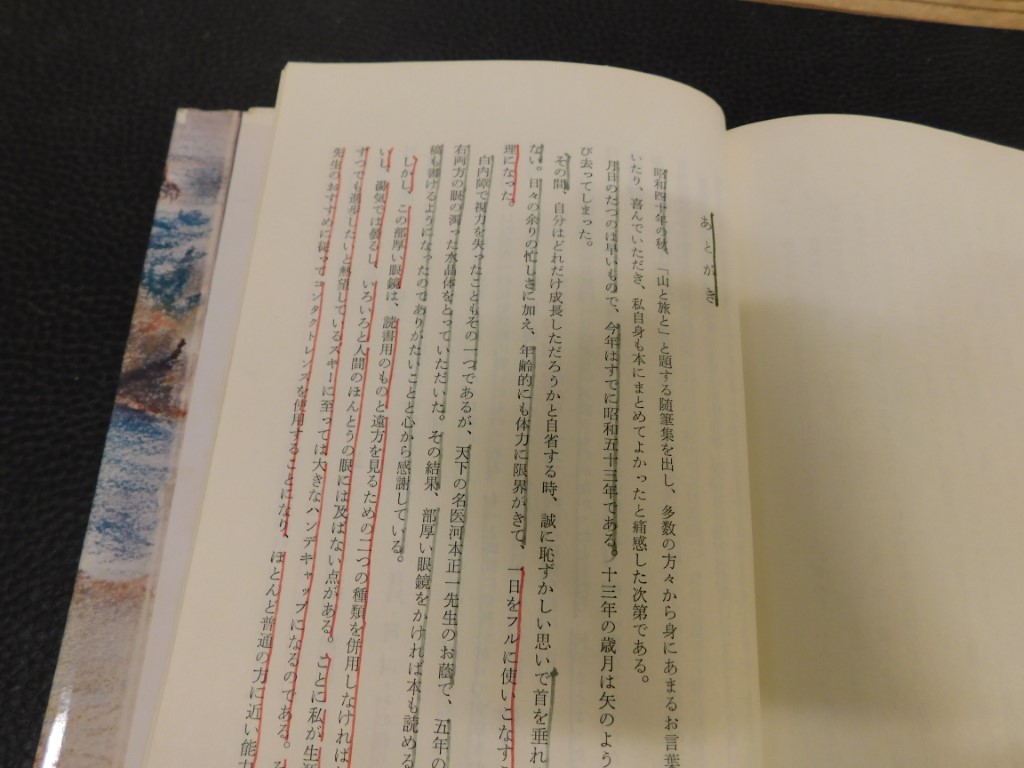 あとがき
昭和四十年の秋、「山と旅と」と題する随筆集を出し、多数の方々から身にあまるお言葉
いたり、喜んでいただき、私自身も本にまとめてよかったと痛感した次第である。
月日のたつのは早いもので、今年はすでに昭和五十三年である。十三年の歳月は矢のよう
び去ってしまった。
その間、自分はどれだけ成長しただろうかと自省する時、誠に恥ずかしい思いで首を垂れ
ない。日々の余りの忙しさに加え、年齢的にも体力に限界がきて、一日をフルに使いこなす
理になった。
白内障で視力を失ったこともその一つであるが、天下の名医河本正一先生のお蔭で、五年の
右両方の眼の濁った水晶体をとっていただいた。その結果、部厚い眼鏡をかければ本も読める
稿も書けるようになったのでありがたいことと心から感謝している。
しかし、この部厚い眼鏡は、読書用のものと遠方を見るための二つの種類を併用しなければ
いし、湯気では曇るし、いろいろと人間のほんとうの眼には及ばない点がある。ことに私が生涯
すでても進歩したいと熱望しているスキーに至っては大きなハンデキャップになるのである。
先生のおすすめに従ってコンタクトレンズを使用することになり、ほとんど普通の方に近い能力